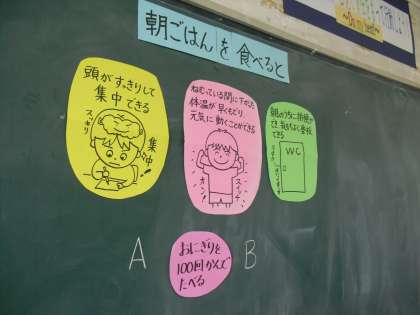 朝ごはんを食べると
頭がすっきりして
集中できる
スッキリ
集中!
ねむっている間に下がった
体温が早くもどり
元気に動くことができる
スイッチ
オン!
朝のうちに排便が
でき、気もちよく登校
できる
WC
A
B
おにぎりを
100回かんで
たべる